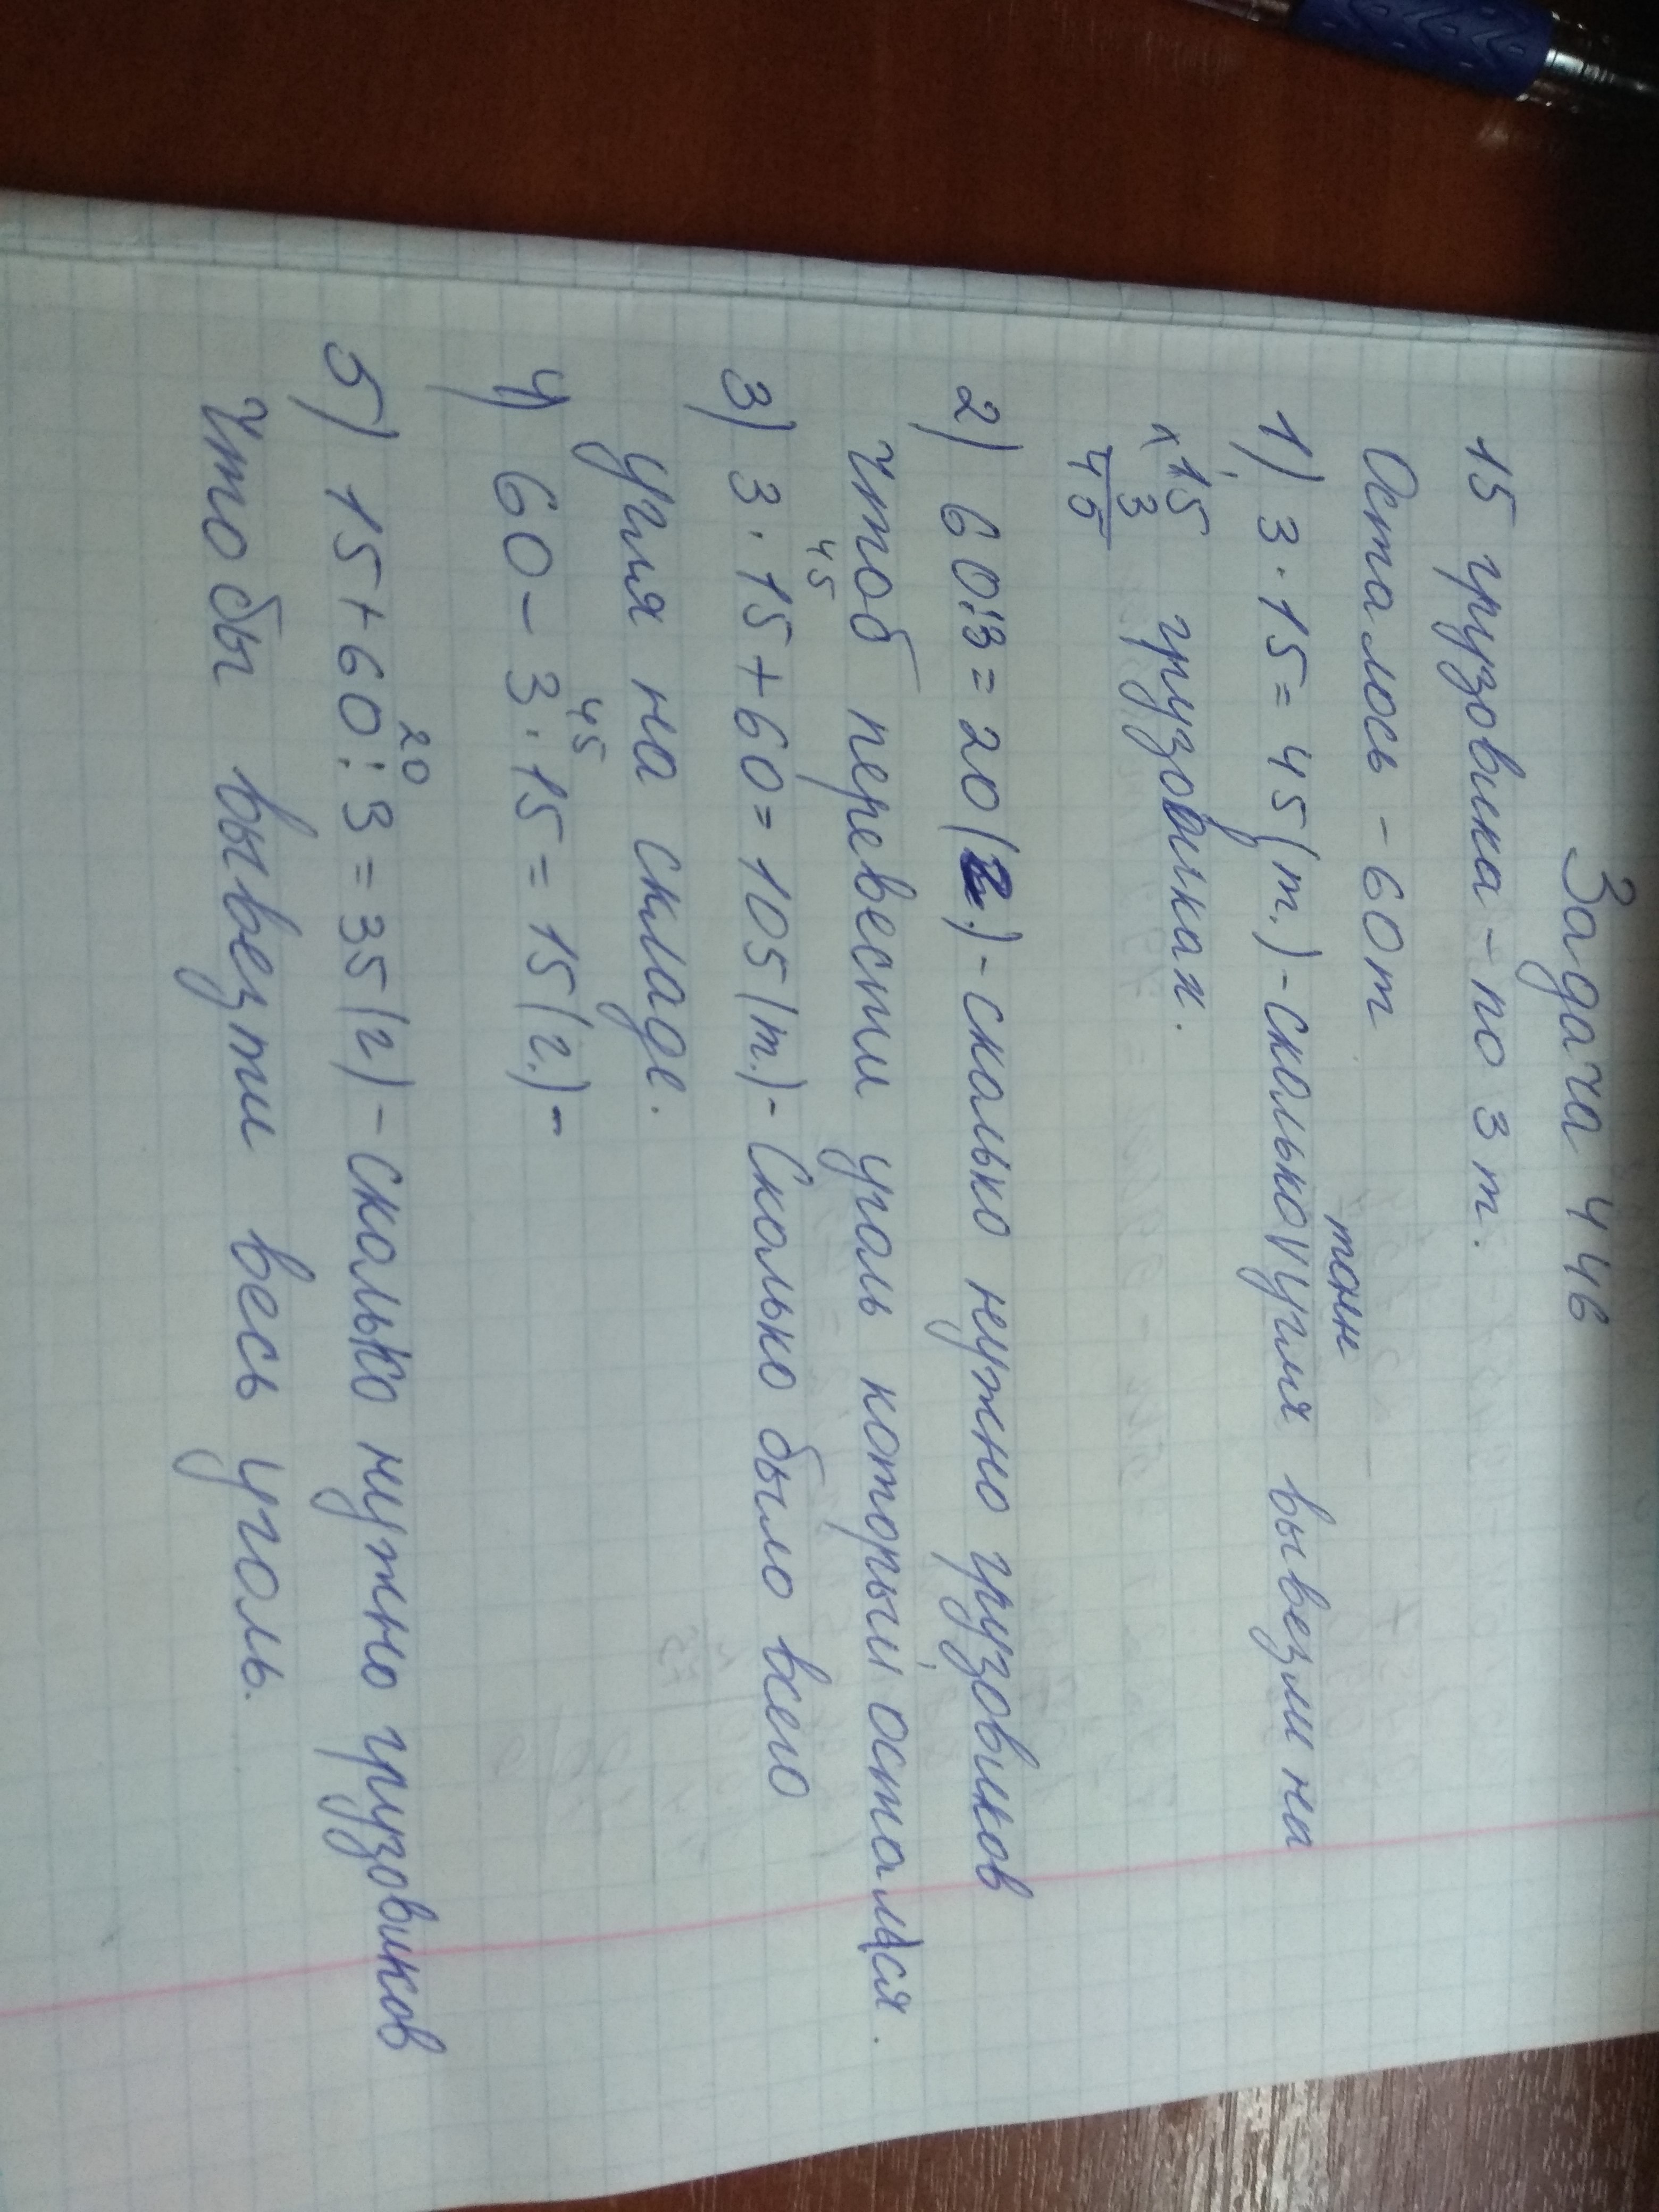 Задача 446
15 грузовика - по 3 т.
Осталось - 60т
тонн
1) 3 · 15 = 45 (т.) - сколько угля вывезли на
х 15 грузовиках.
3
45
2) 60:3 = 20 (г.) - сколько нужно грузовиков
чтоб перевести уголь который остальсся.
45
3) 3 · 15 + 60 = 105 (т.) - Сколько было всего
угля на складе.
45
4) 60 - 3 · 15 = 15 (г.) -
20
5) 15 + 60 : 3 = 35 (г) - Сколько нужно грузовиков
чтобы вывезти весь уголь.